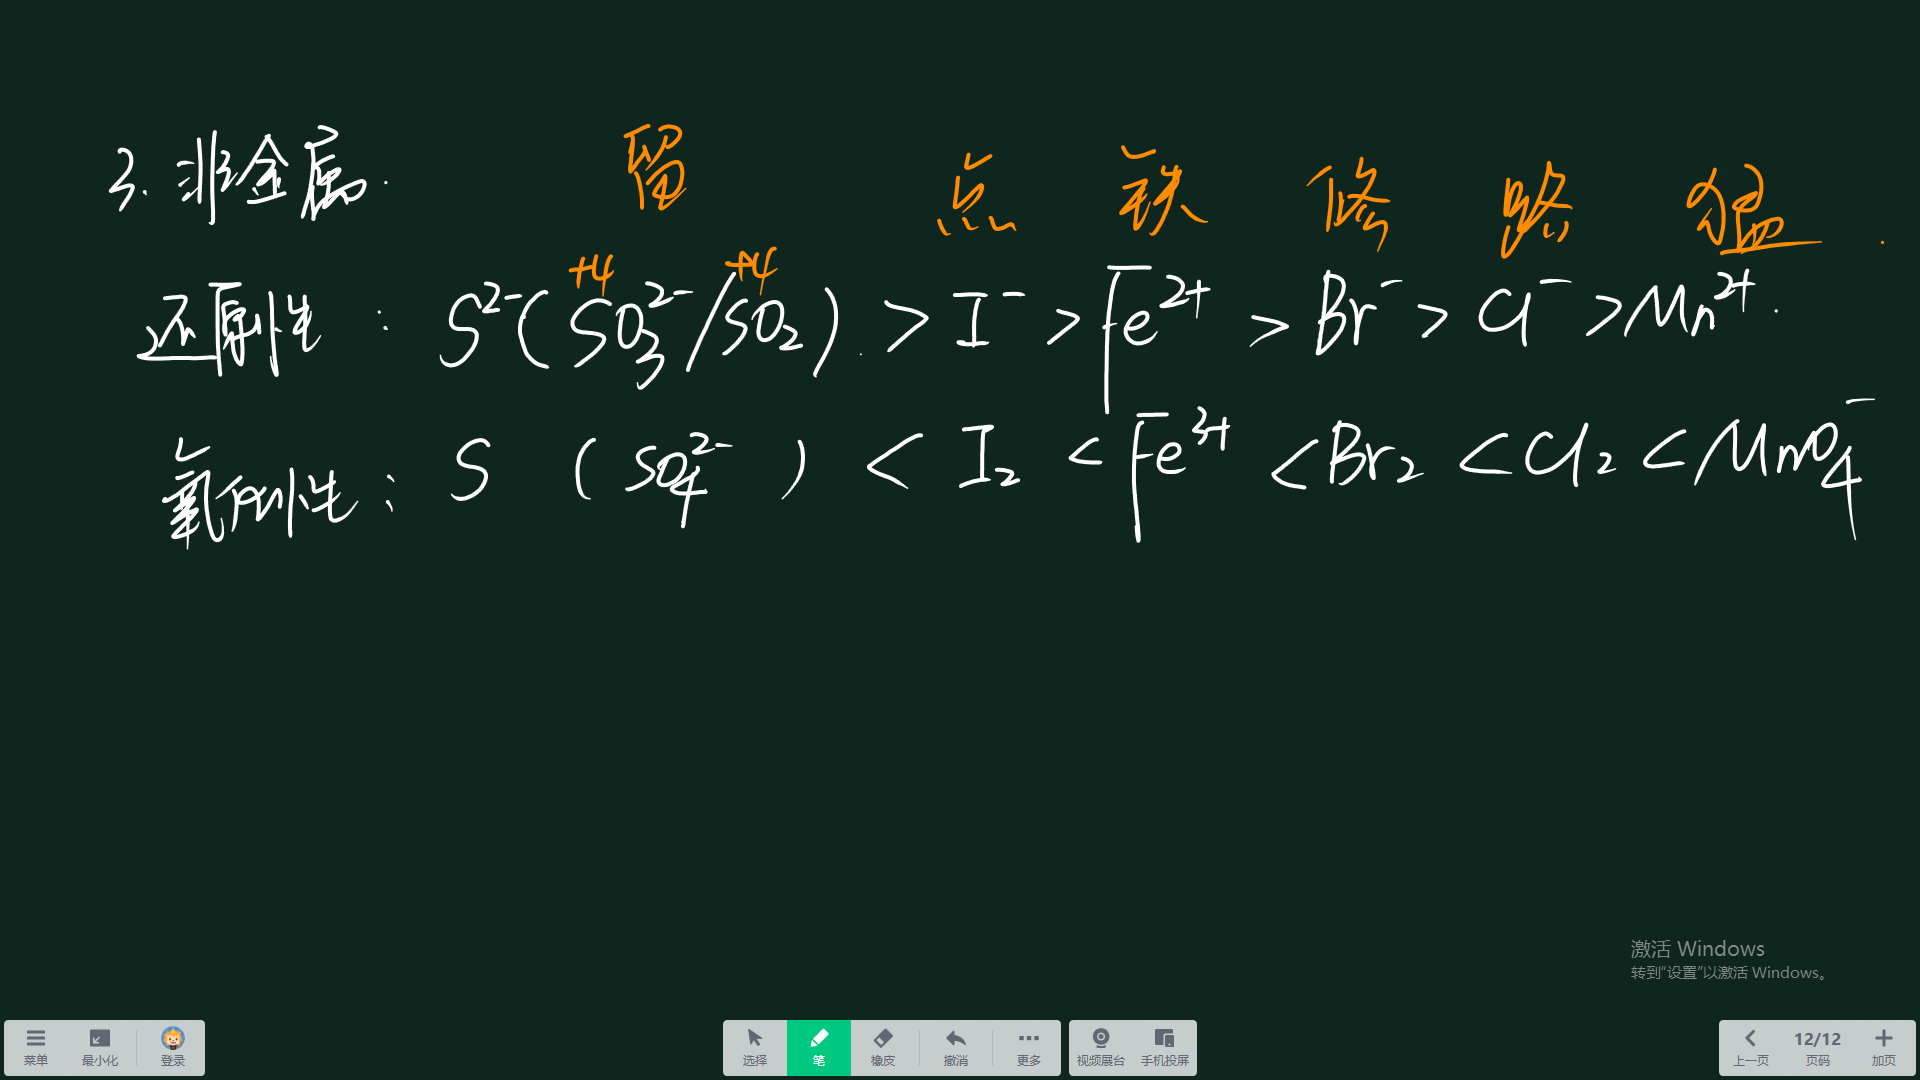 3. 非金属. 留 点 铁 修 路 猛.
+4 +4
还原性: S²⁻(SO₃²⁻/SO₂) > I⁻ > Fe²⁺ > Br⁻ > Cl⁻ > Mn²⁺.
氧化性: S (SO₄²⁻) < I₂ < Fe³⁺ < Br₂ < Cl₂ < MnO₄⁻
激活 Windows
转到“设置”以激活 Windows。
菜单 最小化 登录 选择 笔 橡皮 撤消 更多 视频展台 手机投屏 上一页 12/12 页码 加页